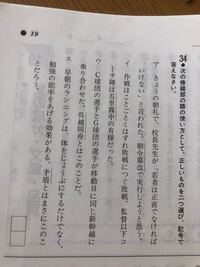 34 次の傍線部の語の使い方として、正しいものを二つ選び、記号で
答えなさい。
ア・きょうの朝礼で、校長先生が、「若者は正直でなければ
いけない」と言われた。朝令暮改で実行しようと思う。
イ・作戦はことごとくはずれ敗戦につぐ敗戦、監督以下コ
ーチ陣は五里霧中の有様だった。
ウ・C球団の選手とG球団の選手が移動日に同じ新幹線に
乗り合わせた。呉越同舟とはこのことだ。
エ・早朝のランニングは、体をじょうぶにするだけでなく、
勉強の能率をあげる効果がある。矛盾とはまさにこのこ
とだろう。
19